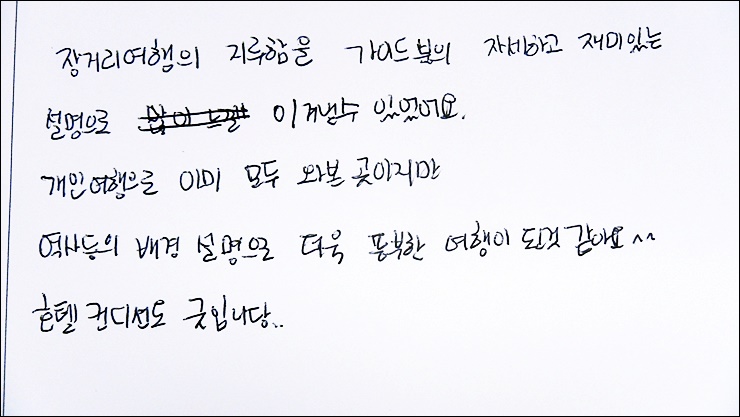 장거리여행의 지루함을 가이드분의 자세하고 재미있는
설명으로 이겨낼수 있었어요.
개인여행으로 이미 모두 와본 곳이지만
역사등의 배경 설명으로 더욱 풍부한 여행이 된것 같아요^^
호텔 컨디션도 굿입니당..